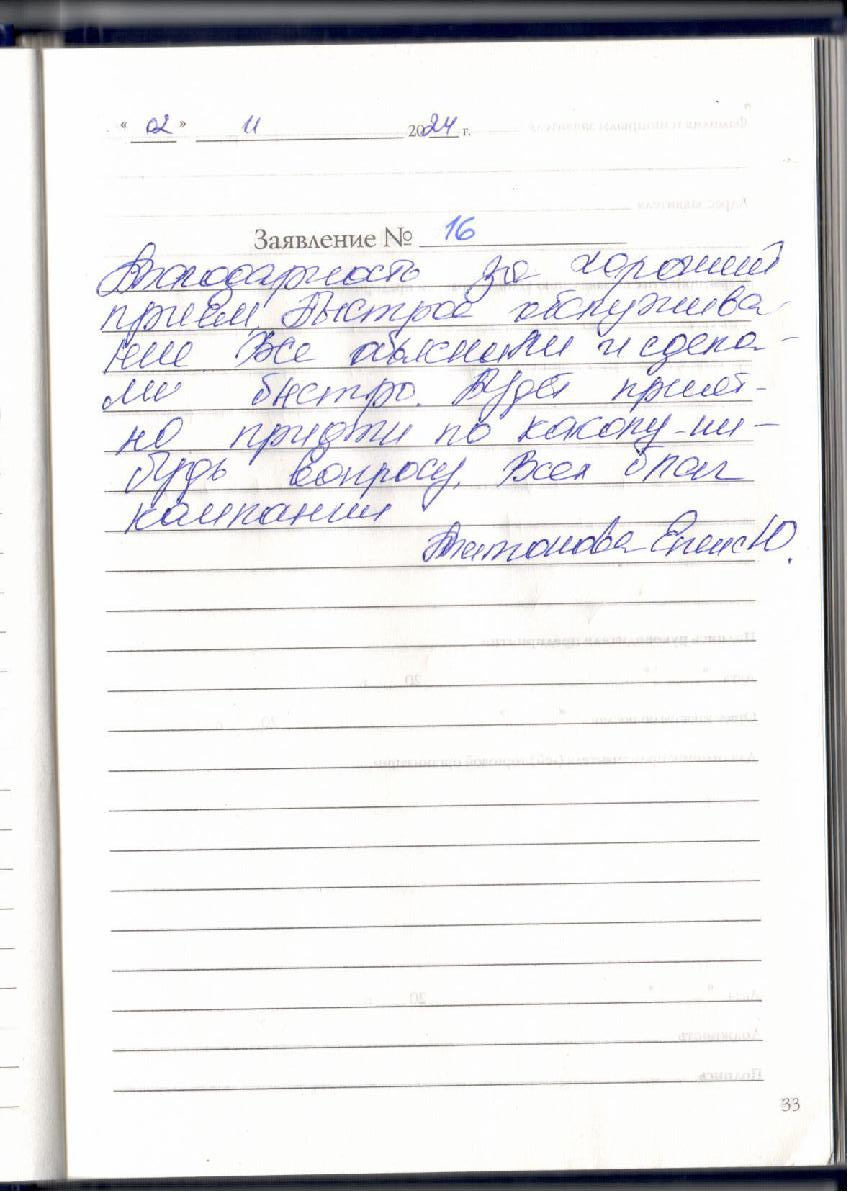 « 02 » 11 2024 г.
Заявление № 16
Благодарность за хороший
приём, Быстрое обслужива-
ние Все объяснили и сдела-
ли быстро. Будет прият-
но придти по какому-ни-
будь вопросу. Всех благ
компании
33